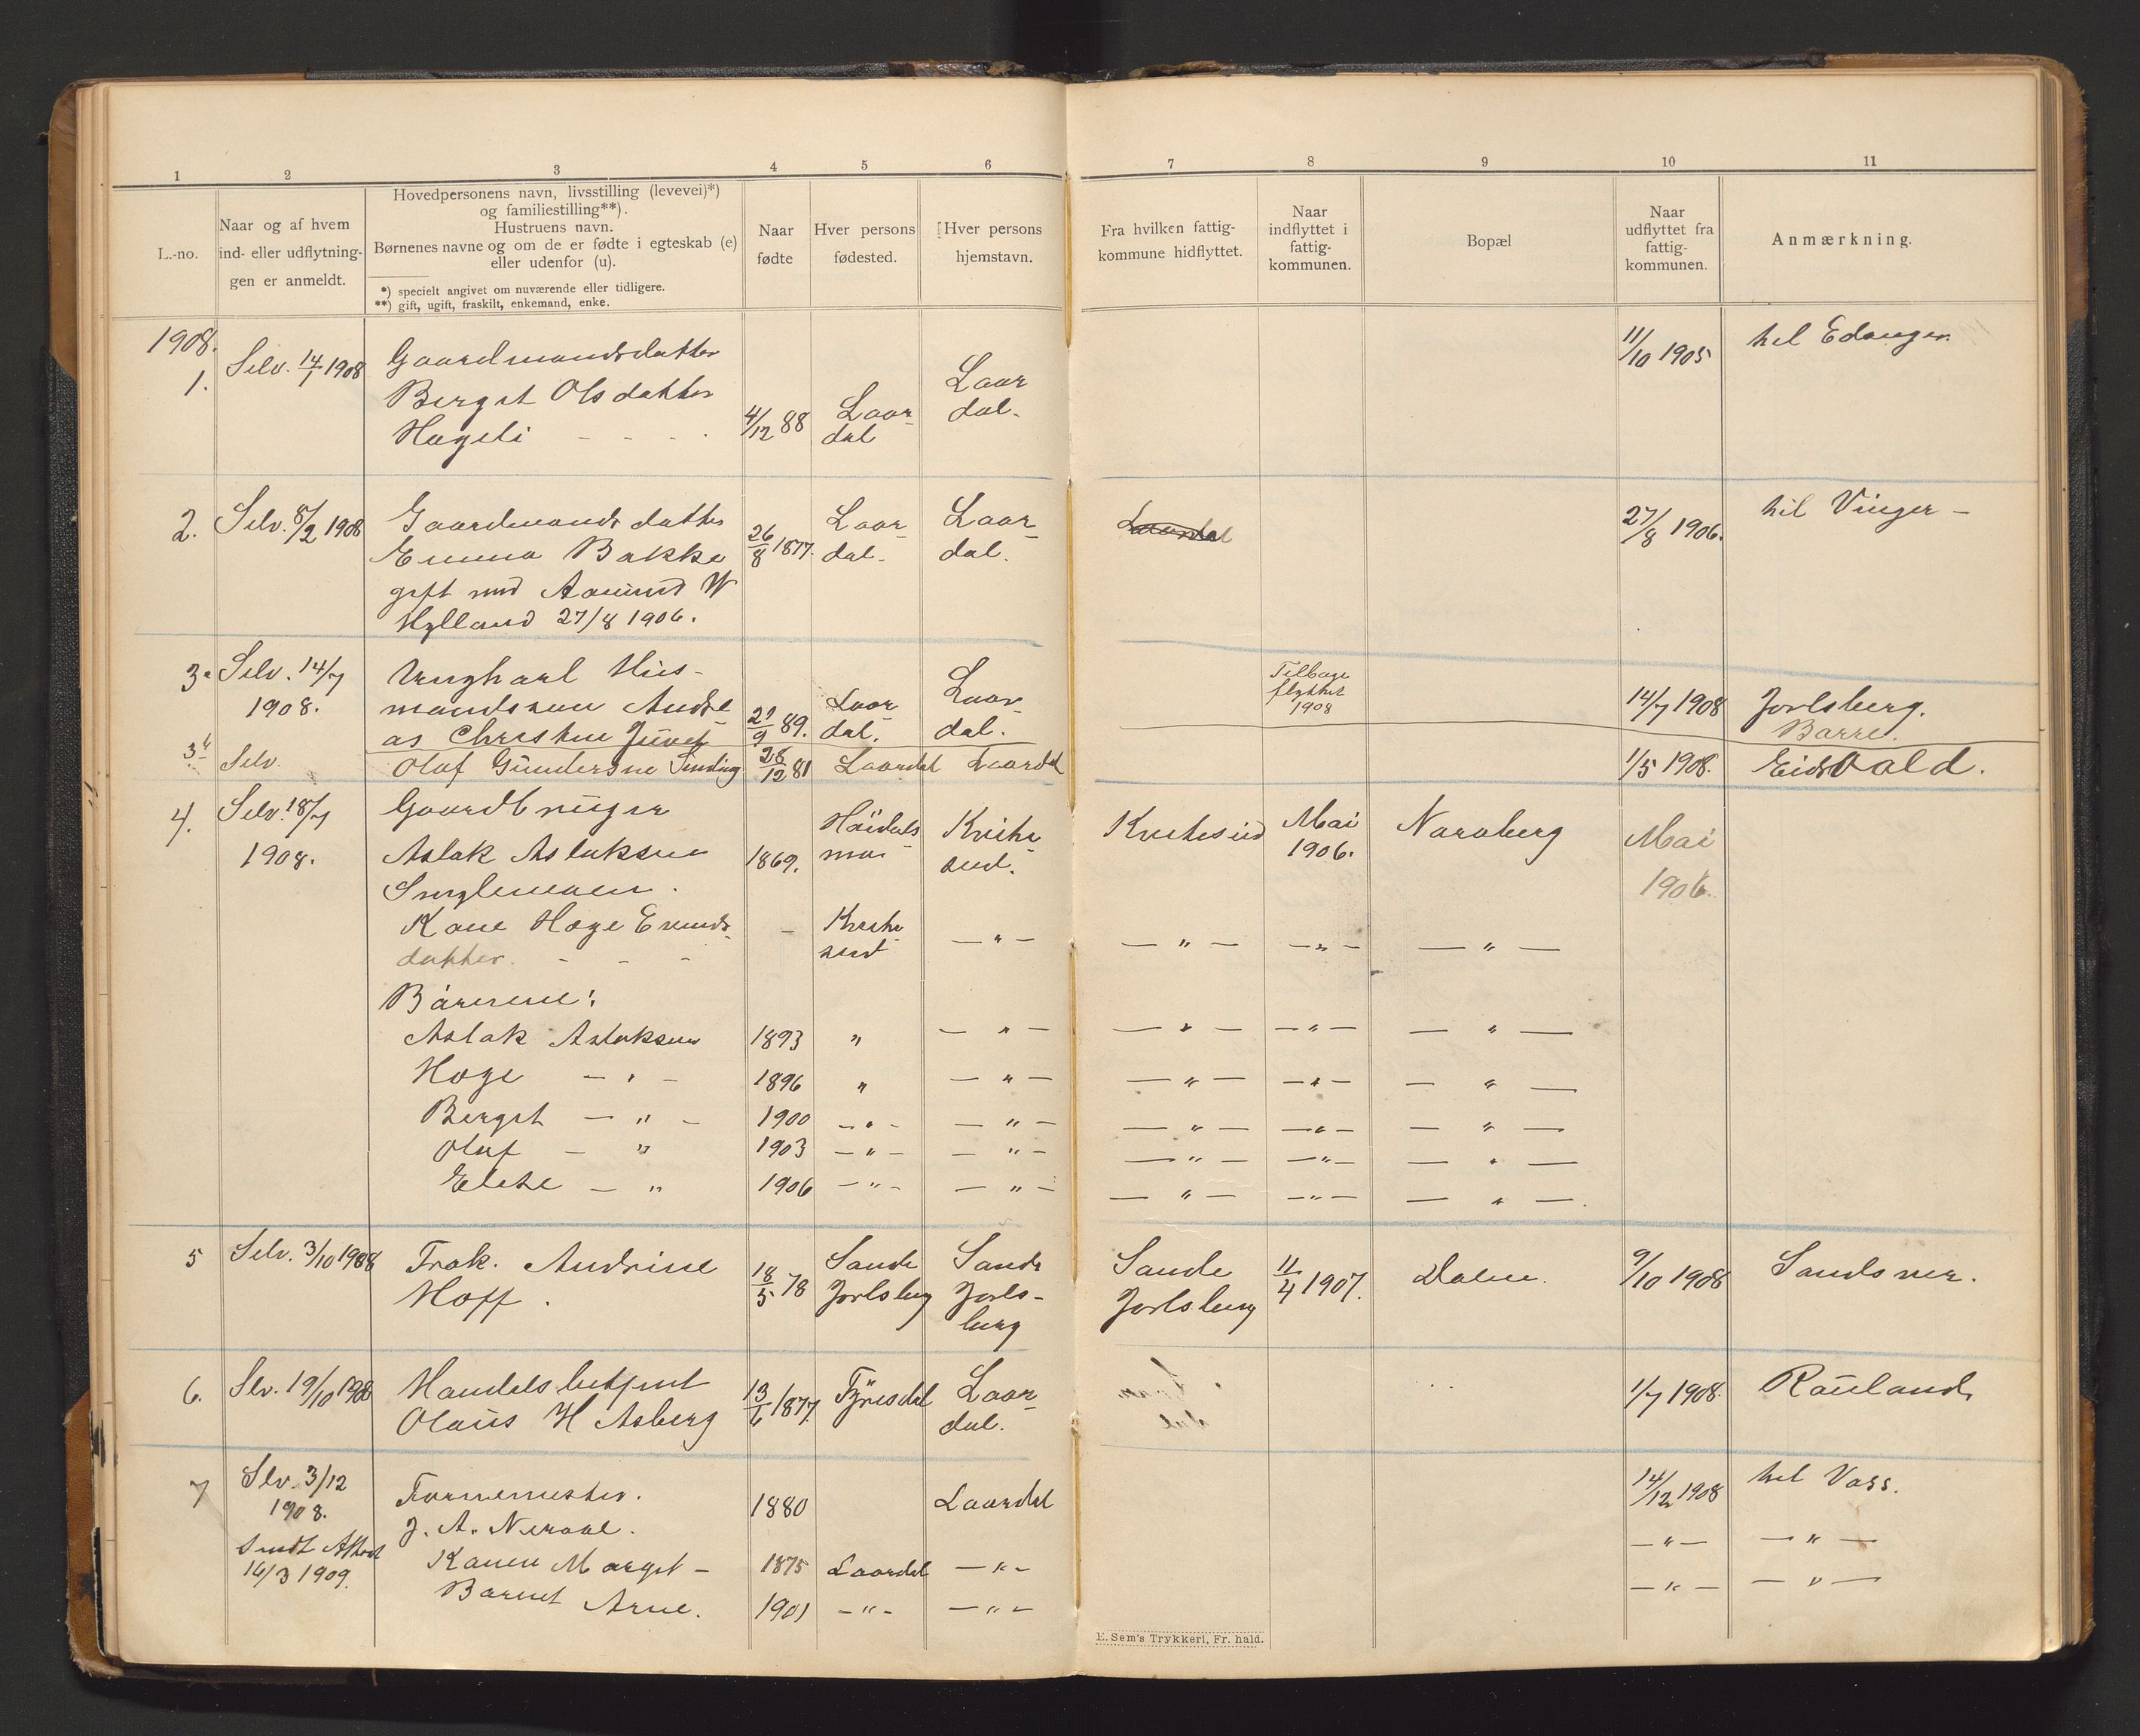 1
2
3
4
5
6
7
8
9
10
11
L.-no.
Naar og af hvem
ind- eller udflytnin-
gen er anmeldt.
Hovedpersonens navn, livsstilling (levevei)*)
og familiestilling**).
Hustruens navn.
Børnenes navne og om de er fødte i egteskab (e)
eller udenfor (u).
*) specielt angivet om nuværende eller tidligere.
**) gift, ugift, fraskilt, enkemand, enke.
Naar
fødte
Hver persons
fødested.
Hver persons
hjemstavn.
Fra hvilken fattig-
kommune hidflyttet.
Naar
indflyttet i
fattig-
kommunen.
Bopæl
Naar
udflyttet fra
fattig-
kommunen.
Anmærkning.
1908.
1.
Selv. 14/1 1908
Gaardmandsdatter
Bergit Olsdatter
Hageli - - - -
4/12 88
Laar-
dal
Laar
dal.
11/10 1905
til Edanger.
2.
Selv. 8/2 1908
Gaardmandsdatter
Emma Bakke
gift med Aamund W
Hylland 27/8 1906.
26/8 1877.
Laar-
dal.
Laar-
dal.
Laardal
27/8 1906.
til Vinger -
3a
Selv. 14/7
1908.
Ungkarl Hus-
mandssøn Andre-
as Christian Juvet
29/9 89.
Laar
dal.
Laar-
dal.
Tilbage
flyttet
1908
14/7 1908
Jarlsberg.
Borre.
3b
Selv.
Olaf Gundersne
28/12 81
Laardal
Laardal
1/5 1908.
Eidsvold.
4.
Selv. 18/7
1908.
Gaardbruger
Aslak Aslaksen
1869.
Høidals
mo-
Kvite-
seid.
Kviteseid
Mai
1906.
Naraberg
Mai
1906.
Kone Hæge Evinds-
datter. - - -
-
Kvite-
seid
- " -
- " -
- " -
- " -
Børnene:
Aslak Aslaksen
1893
"
- " -
- " -
- " -
- " -
Hæge - " -
1896
"
- " -
- " -
- " -
- " -
Bergit - " -
1900
- " -
- " -
- " -
- " -
- " -
Olaf - "
1903
- " -
- " -
- " -
- " -
- " -
- "
1906
- " -
- " -
- " -
- " -
- " -.
5
Selv. 3/10 1908
Frøk. Andrine
Hoff.
18/5 78
Sande
Jarlsberg
Sande
Jarls-
berg
Sande
Jarlsberg
11/4 1907.
Dalen.
9/10 1908
Sandsver.
6.
Slv. 19/10 1908
Handelsbetjent
Olaus H Asberg
13/6 1877.
Fyresdal
Laar-
dal.
1/7 1908.
Rauland.
7
Slv. 3/12
1908.
Sendt Attest
16/3 1909.
Tarnemester.
J. A. Neraal.
1880
Laardal
14/12 1908
til Voss.
Konen Margit -
1875
Laardal
- " -
- " -
- " -
Barnet Arne.
1901
- " -
- " -
- " -
- " -
E. Sem's Trykkeri, Fr. hald.